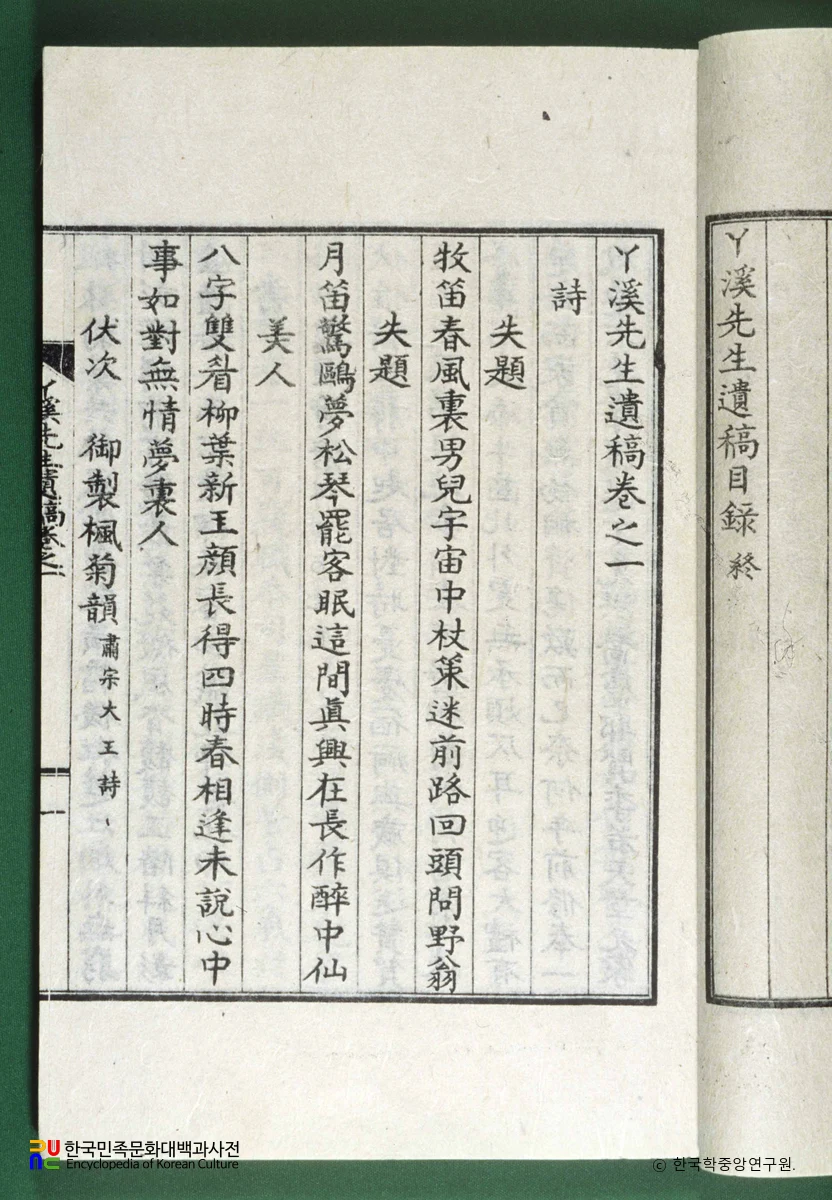 丫溪先生遺稿目錄 終
丫溪先生遺稿卷之一
詩
失題
牧笛春風裏男兒宇宙中杖策迷前路回頭問野翁
失題
月笛驚鷗夢松琴罷客眠這間眞興在長作醉中仙
美人
八字雙眉柳葉新玉顔長得四時春相逢未說心中
事如對無情夢裏人
伏次 御製楓菊韻 肅宗大王詩
丫溪先生遺稿卷之一
一
한국민족문화대백과사전
Encyclopedia of Korean Culture
ⓒ 한국학중앙연구원.